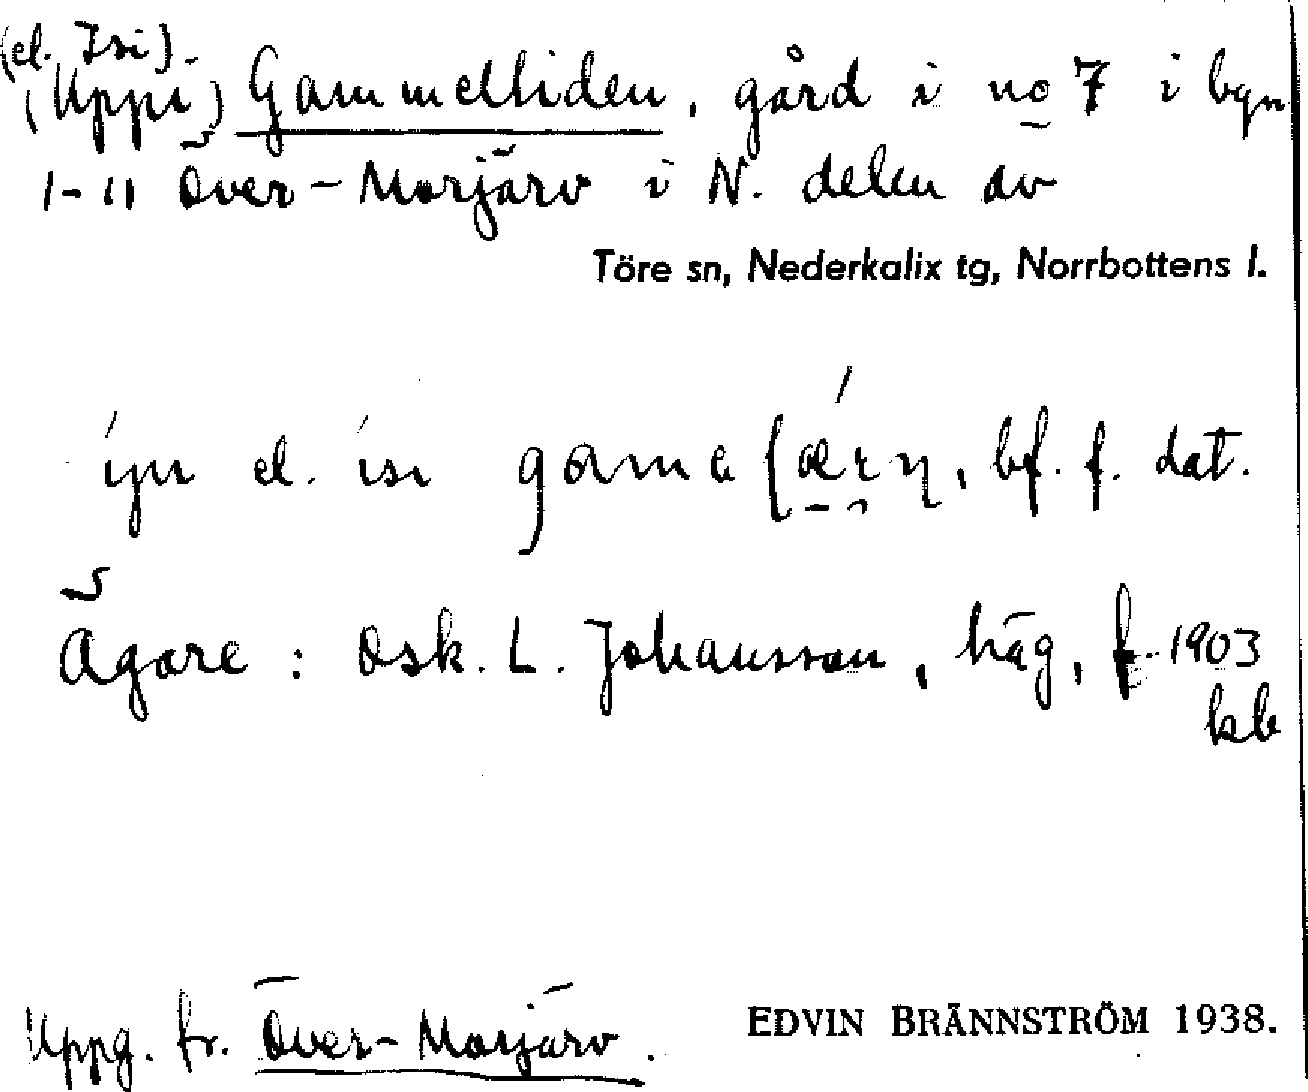 (el. Isi).
(Uppi) Gammelliden, gård i no 7 i byn
1-11 Över-Morjärv i N. delen av
Töre sn, Nederkalix tg, Norrbottens l.
bf. f. dat.
Ägare: Osk. L. Johansson, häg, f. 1903
kb
Uppg. fr. Över-Morjärv.
EDVIN BRÄNNSTRÖM 1938.